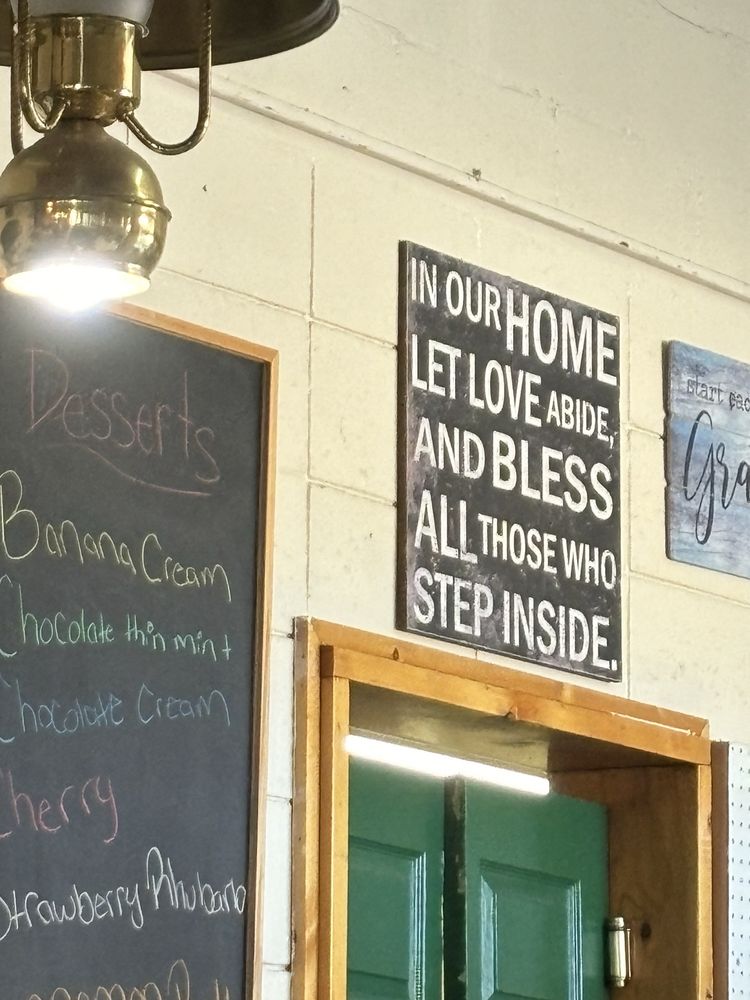 Desserts
Banana Cream
Chocolate thin mint
Chocolate Cream
Cherry
Strawberry Rhubarb
IN OUR HOME
LET LOVE ABIDE,
AND BLESS
ALL THOSE WHO
STEP INSIDE.
start